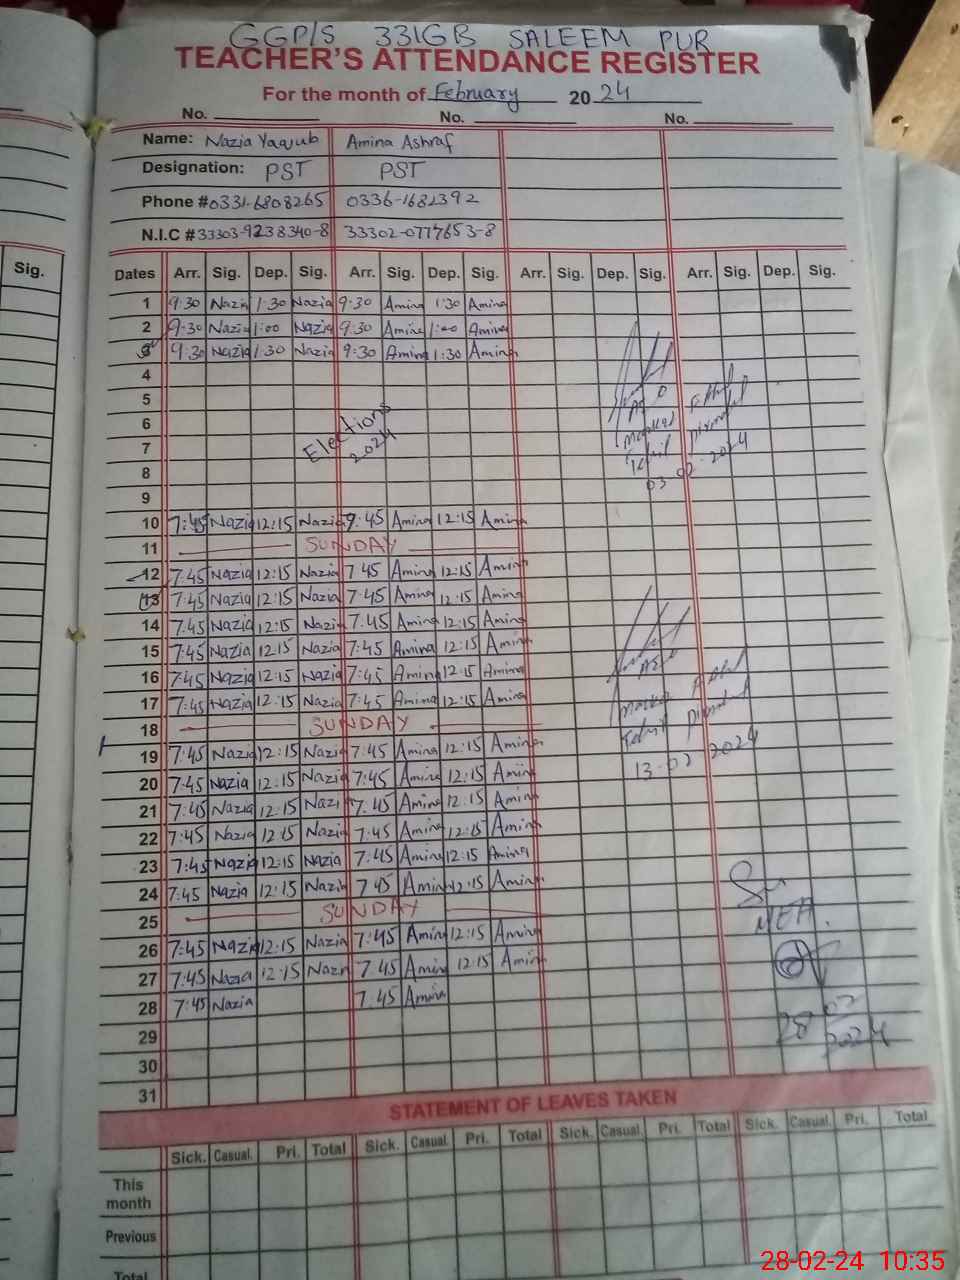 GGP/S 331GB SALEEM PUR
TEACHER'S ATTENDANCE REGISTER
For the month of February 20 24
No. No. No.
Name: Nazia Yaqub Amina Ashraf
Designation: PST PST
Phone # 0331-6808265 0336-1682392
N.I.C # 33303-9238340-8 33302-0777653-8
Sig.
Dates Arr. Sig. Dep. Sig. Arr. Sig. Dep. Sig. Arr. Sig. Dep. Sig. Arr. Sig. Dep. Sig.
1 9:30 Nazia 1:30 Nazia 9:30 Amina 1:30 Amina
2 9:30 Nazia 1:00 Nazia 9:30 Amina 1:00 Amina
3 9:30 Nazia 1:30 Nazia 9:30 Amina 1:30 Amina
4
5
6
Elections
7
2024
8
9
03-02-2024
10 7:45 Nazia 12:15 Nazia 9:45 Amina 12:15 Amina
11 SUNDAY
12 7:45 Nazia 12:15 Nazia 7:45 Amina 12:15 Amina
13 7:45 Nazia 12:15 Nazia 7:45 Amina 12:15 Amina
14 7:45 Nazia 12:15 Nazia 7:45 Amina 12:15 Amina
15 7:45 Nazia 12:15 Nazia 7:45 Amina 12:15 Amina
16 7:45 Nazia 12:15 Nazia 7:45 Amina 12:15 Amina
17 7:45 Nazia 12:15 Nazia 7:45 Amina 12:15 Amina
18 SUNDAY
19 7:45 Nazia 12:15 Nazia 7:45 Amina 12:15 Amina
13-02 2024
20 7:45 Nazia 12:15 Nazia 7:45 Amina 12:15 Amina
21 7:45 Nazia 12:15 Nazia 7:45 Amina 12:15 Amina
22 7:45 Nazia 12:15 Nazia 7:45 Amina 12:15 Amina
23 7:45 Nazia 12:15 Nazia 7:45 Amina 12:15 Amina
24 7:45 Nazia 12:15 Nazia 7:45 Amina 12:15 Amina
25 SUNDAY
MEA.
26 7:45 Nazia 12:15 Nazia 7:45 Amina 12:15 Amina
27 7:45 Nazia 12:15 Nazia 7:45 Amina 12:15 Amina
28 7:45 Nazia 7:45 Amina
28 02
2024
29
30
31
STATEMENT OF LEAVES TAKEN
Sick. Casual. Pri. Total Sick. Casual. Pri. Total Sick. Casual. Pri. Total Sick. Casual. Pri. Total
This
month
Previous
Total
28-02-24 10:35